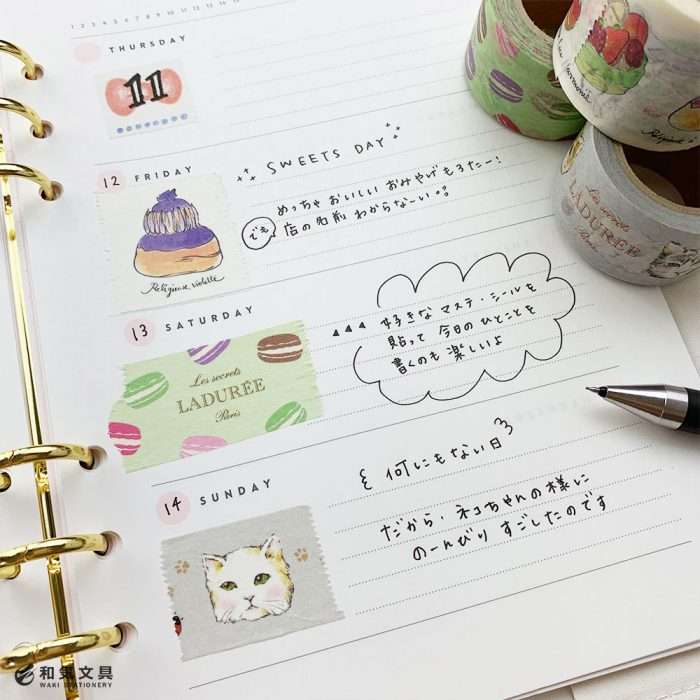 1 2 3 4 5 6 7 8 9 10 11 12 13
THURSDAY
11
12 FRIDAY
SWEETS DAY
めっちゃ おいしい おみやげ もろたー!
でも
店の名前 わからなーい
Religieuse violette
13 SATURDAY
Les secrets
LADURÉE
Paris
好きな マステ・シールを
貼って 今日の ひとことを
書くのも 楽しいよ
14 SUNDAY
{ 何にもない日 }
だから、ネコちゃんの様に
のーんびり すごしたのです
Les secrets
LADURÉE
Paris
和気文具
WAKI STATIONERY